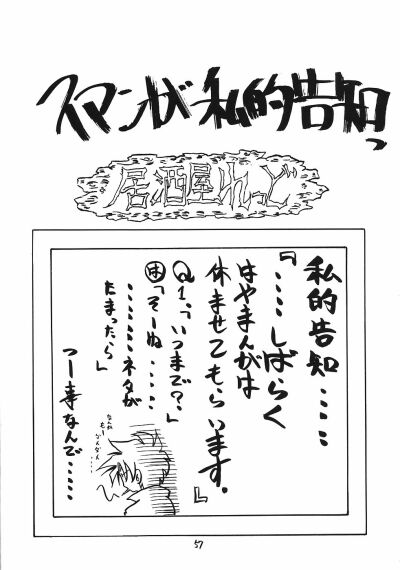 スマンが私的告知っ
居酒屋れっど
私的告知‥‥‥
『‥‥‥しばらく
はやまんがは
休ませてもらいます。』
Q1.「いつまで?」
は「そーね‥‥‥
‥‥‥‥ネタが
たまったら」
つー事なんで‥‥‥
57